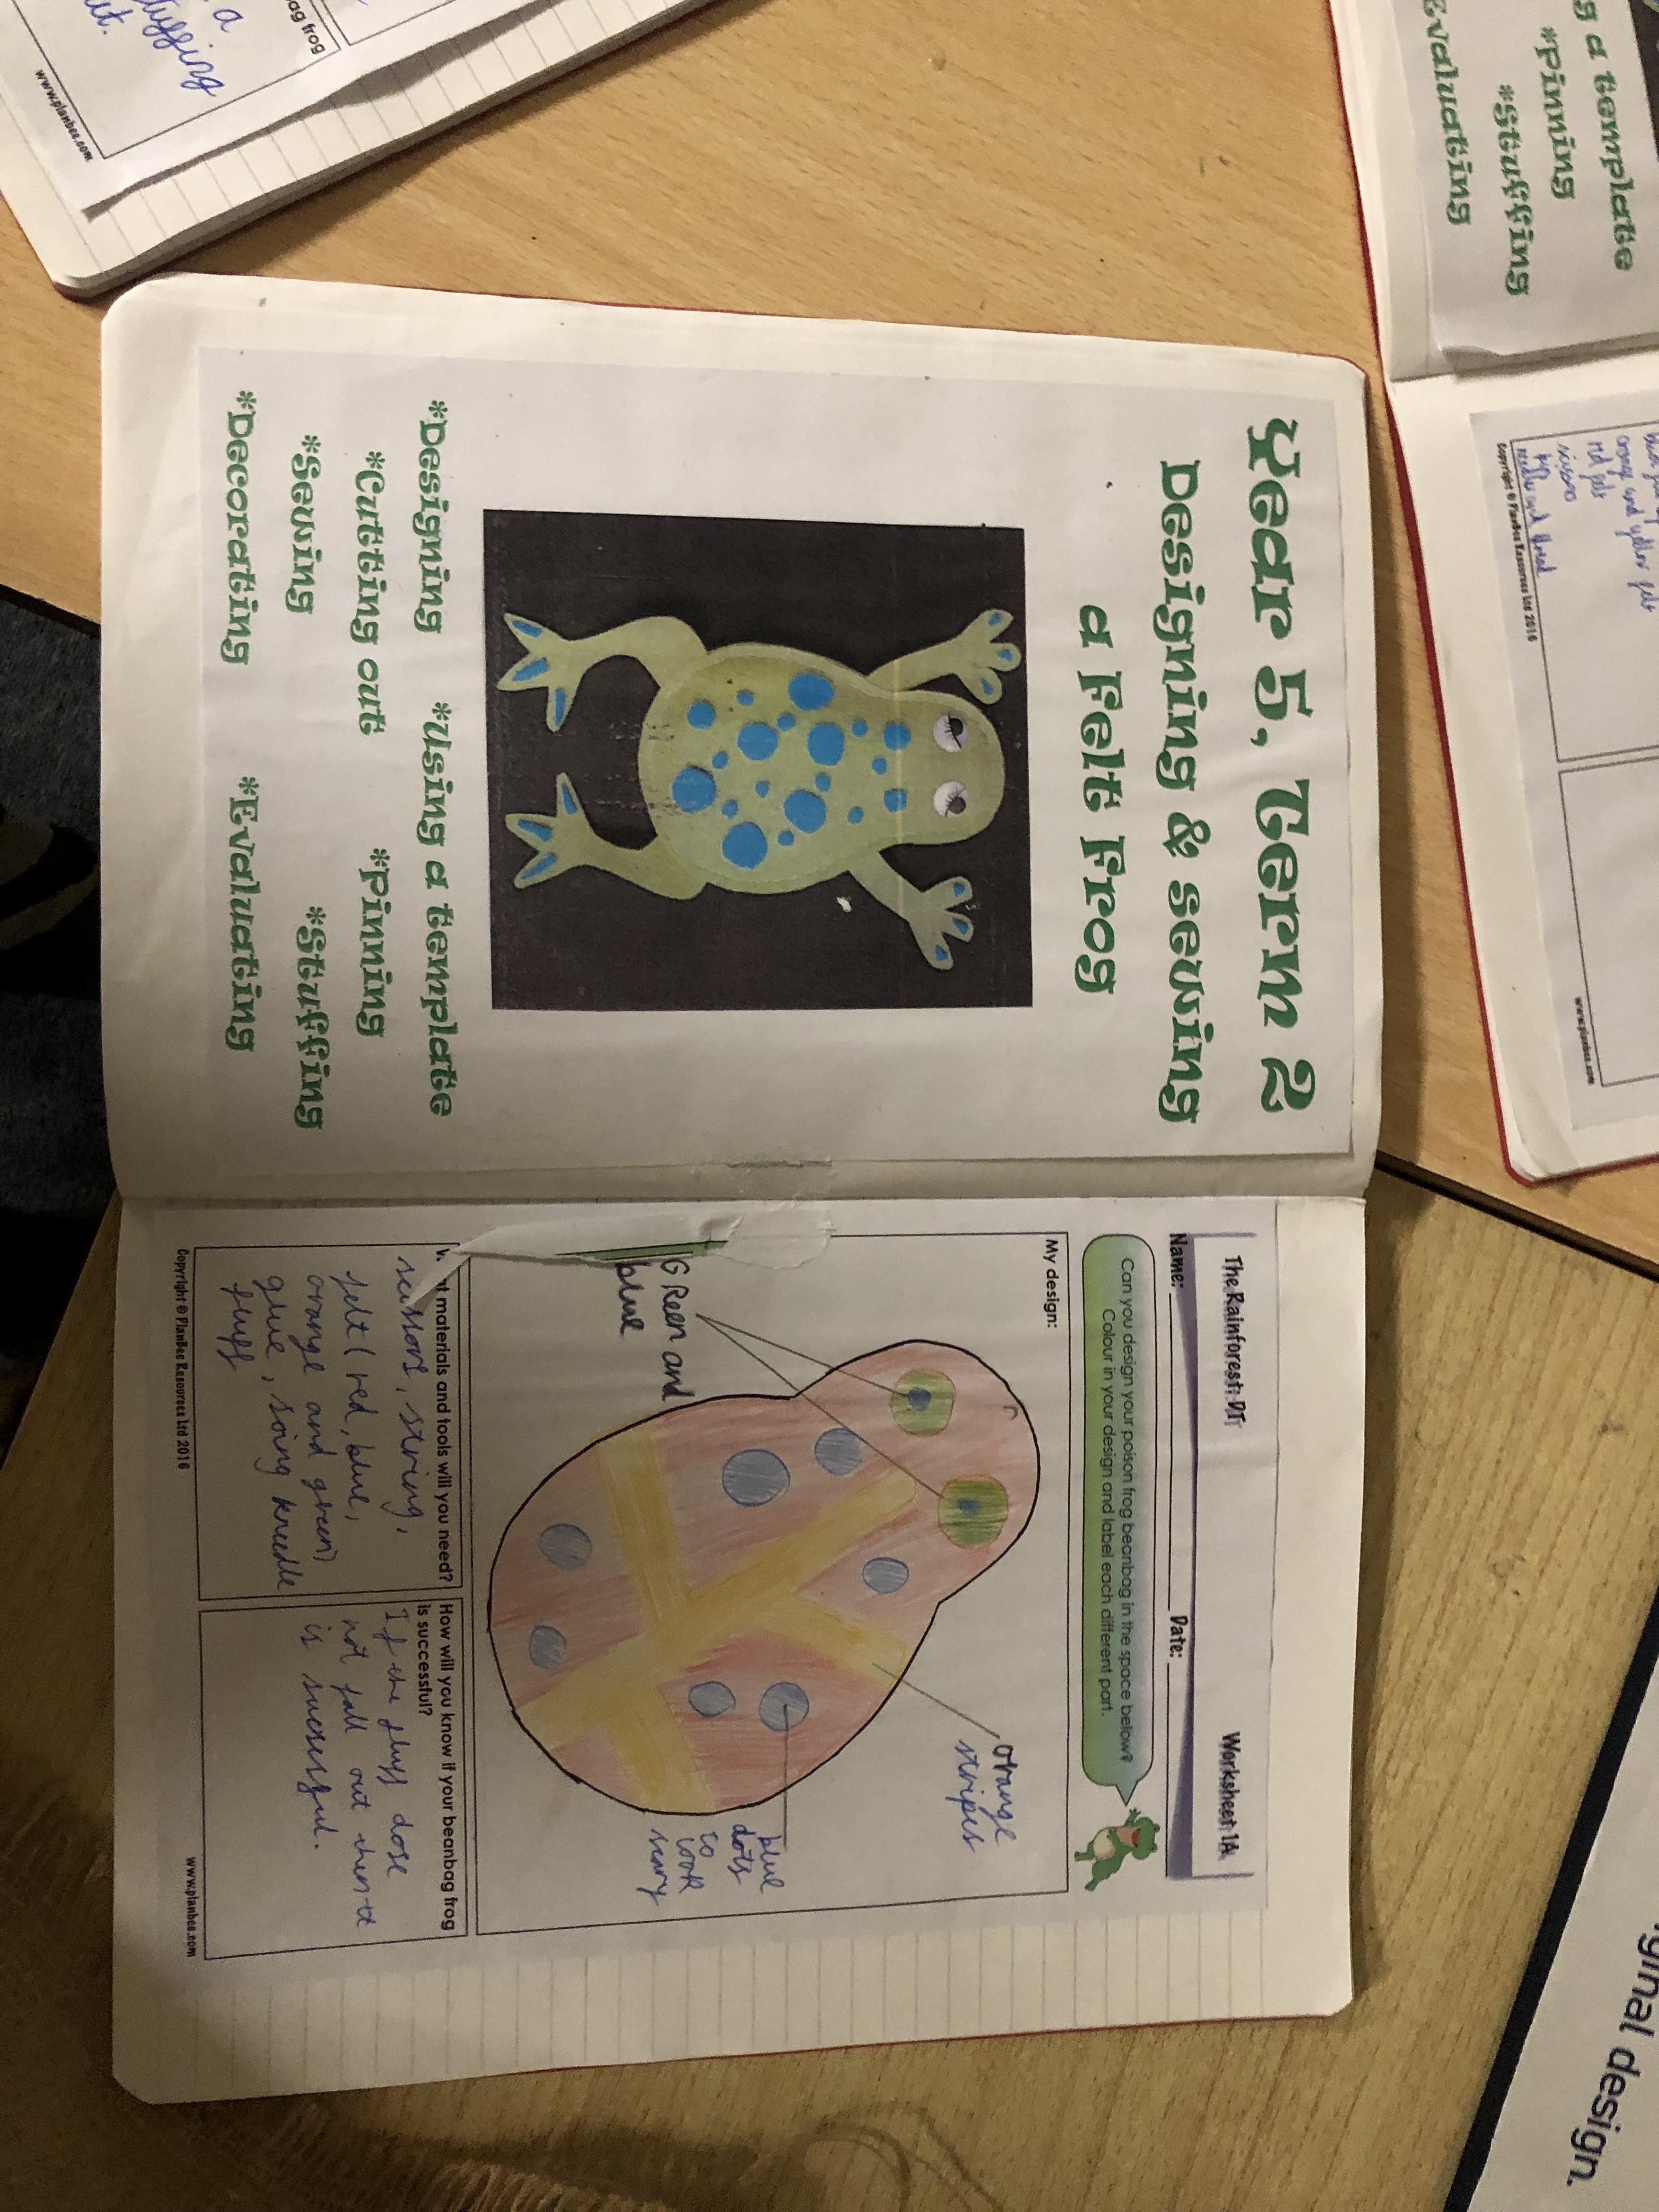 Year 5, Term 2
Designing & sewing
a Felt Frog
*Designing *Using a template
*Cutting out *Pinning
*Sewing *Stuffing
*Decorating *Evaluating
The Rainforest: DT
Worksheet 1A
Name: Date:
Can you design your poison frog beanbag in the space below?
Colour in your design and label each different part.
My design:
GReen and
blue
orange
stripes
blue
dots
to
look
scary
materials and tools will you need?
scissors, string,
felt (red, blue,
orange and green)
glue, soing kneedle
fluff
How will you know if your beanbag frog
is successful?
If the fluff dose
not fall out then it
is sucessful.
Copyright © PlanBee Resources Ltd 2016
www.planbee.com
a
ut.
ag frog
www.planbee.com
g a template
*Pinning
*Stuffing
Evaluating
orange and yellow felt
red felt
scissors
needle and thread
Copyright © PlanBee Resources Ltd 2016
www.planbee.com
ginal design.